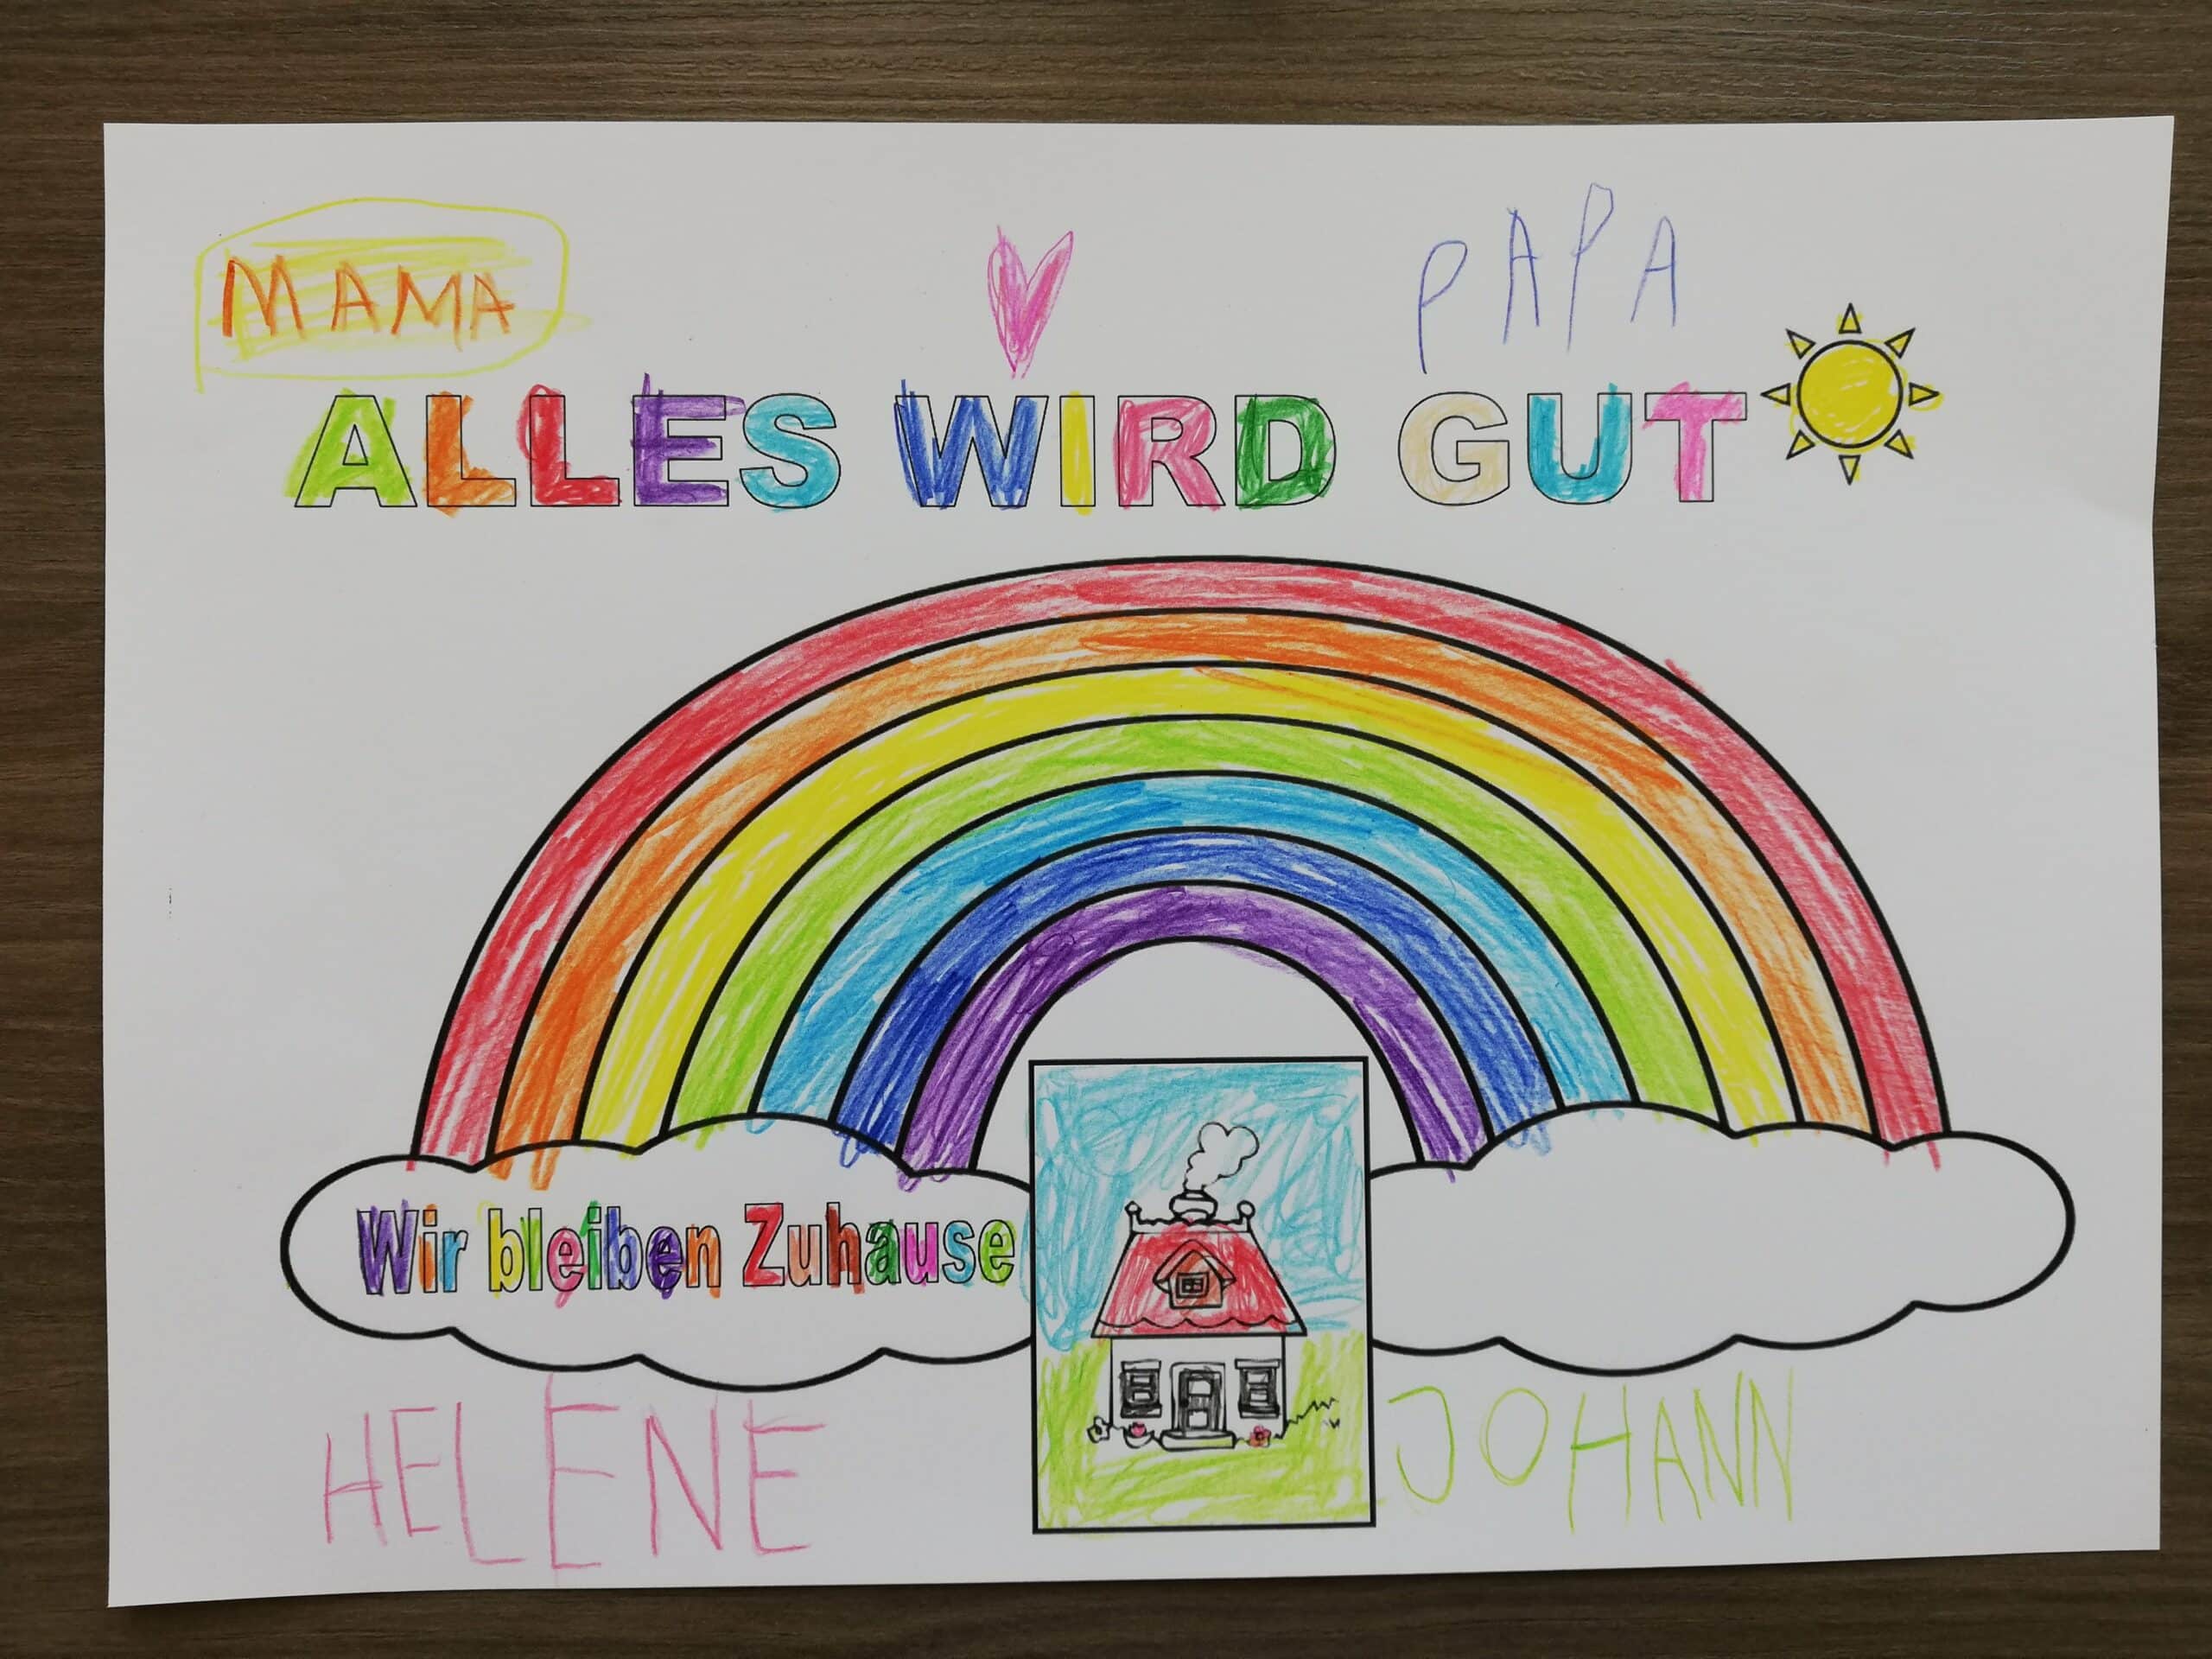 MAMA
PAPA
ALLES WIRD GUT
Wir bleiben Zuhause
HELENE
JOHANN